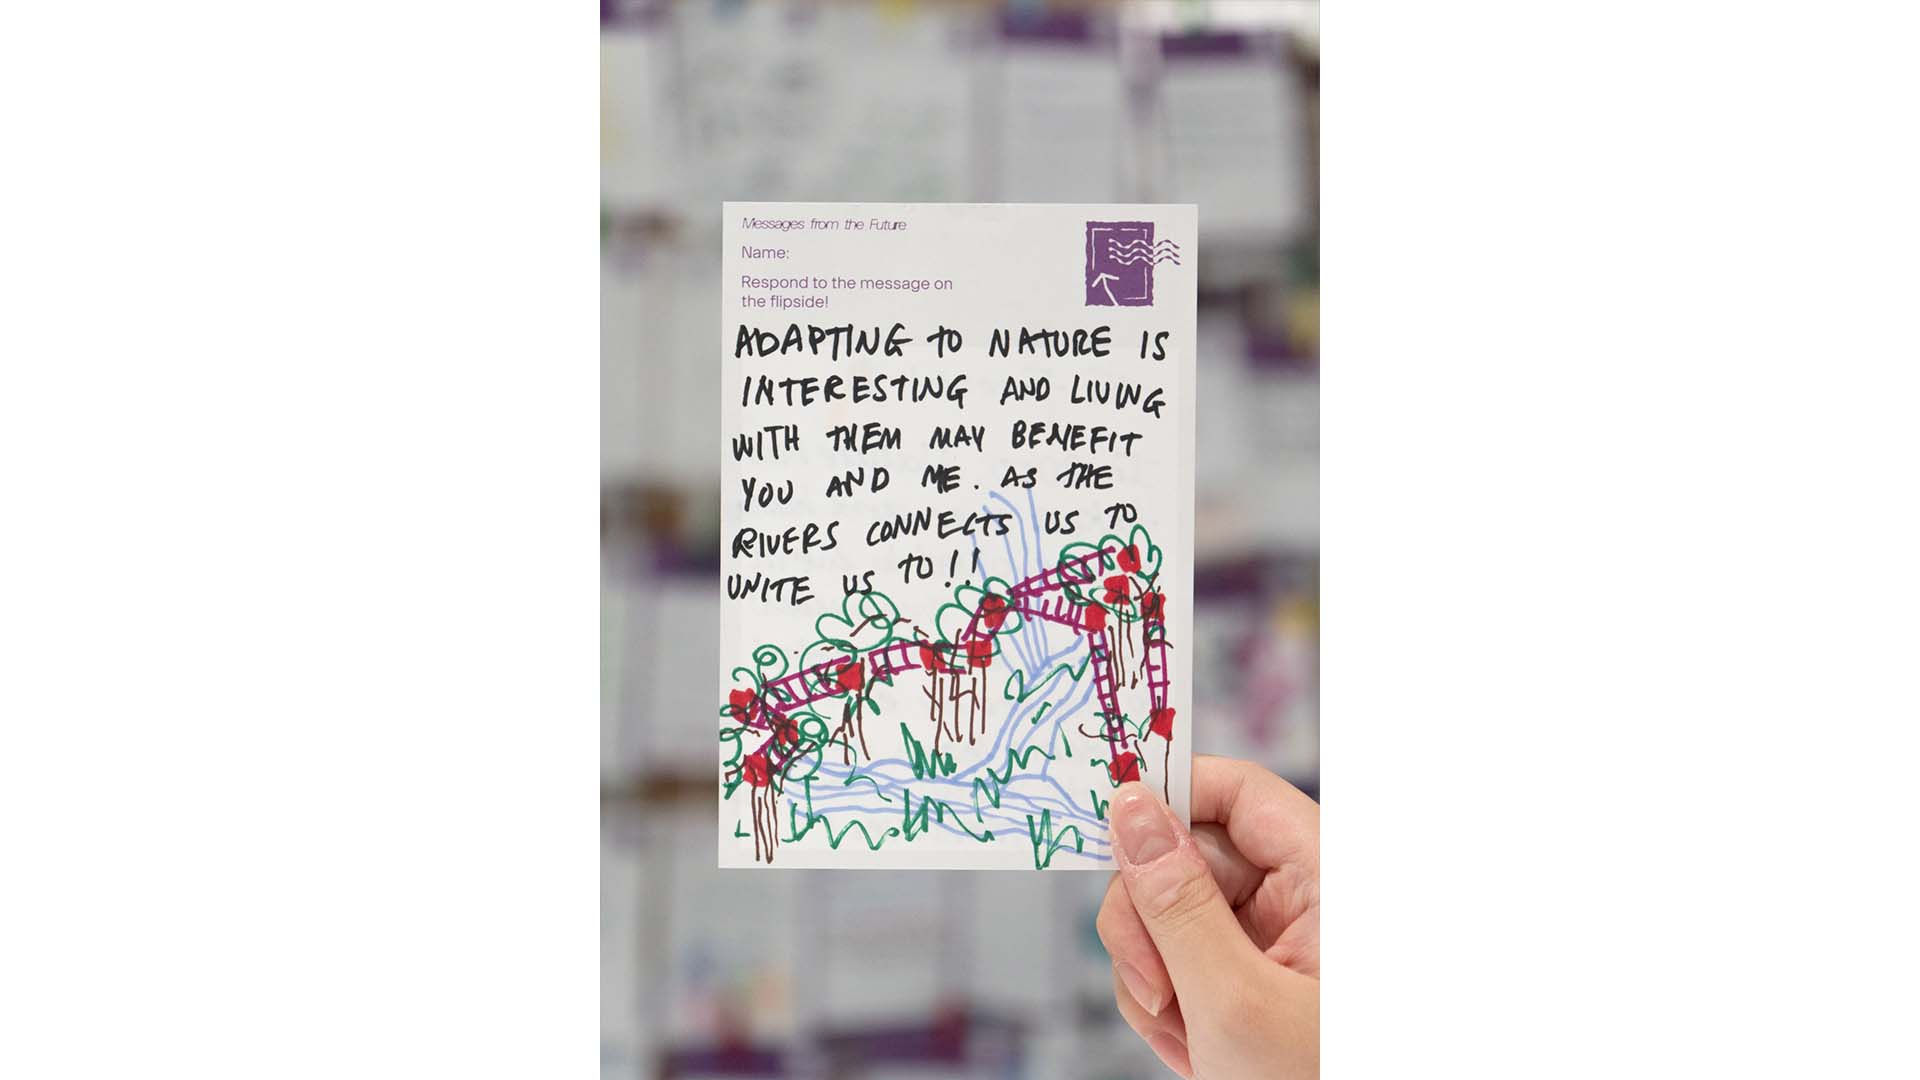 Messages from the Future
Name:
Respond to the message on
the flipside!
ADAPTING TO NATURE IS
INTERESTING AND LIVING
WITH THEM MAY BENEFIT
YOU AND ME. AS THE
RIVERS CONNECTS US TO
UNITE US TO!!